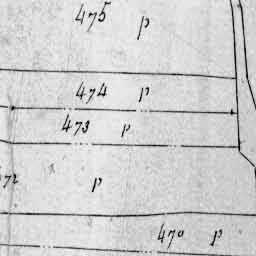 475 p
474 p
473 p
72 p
470 p